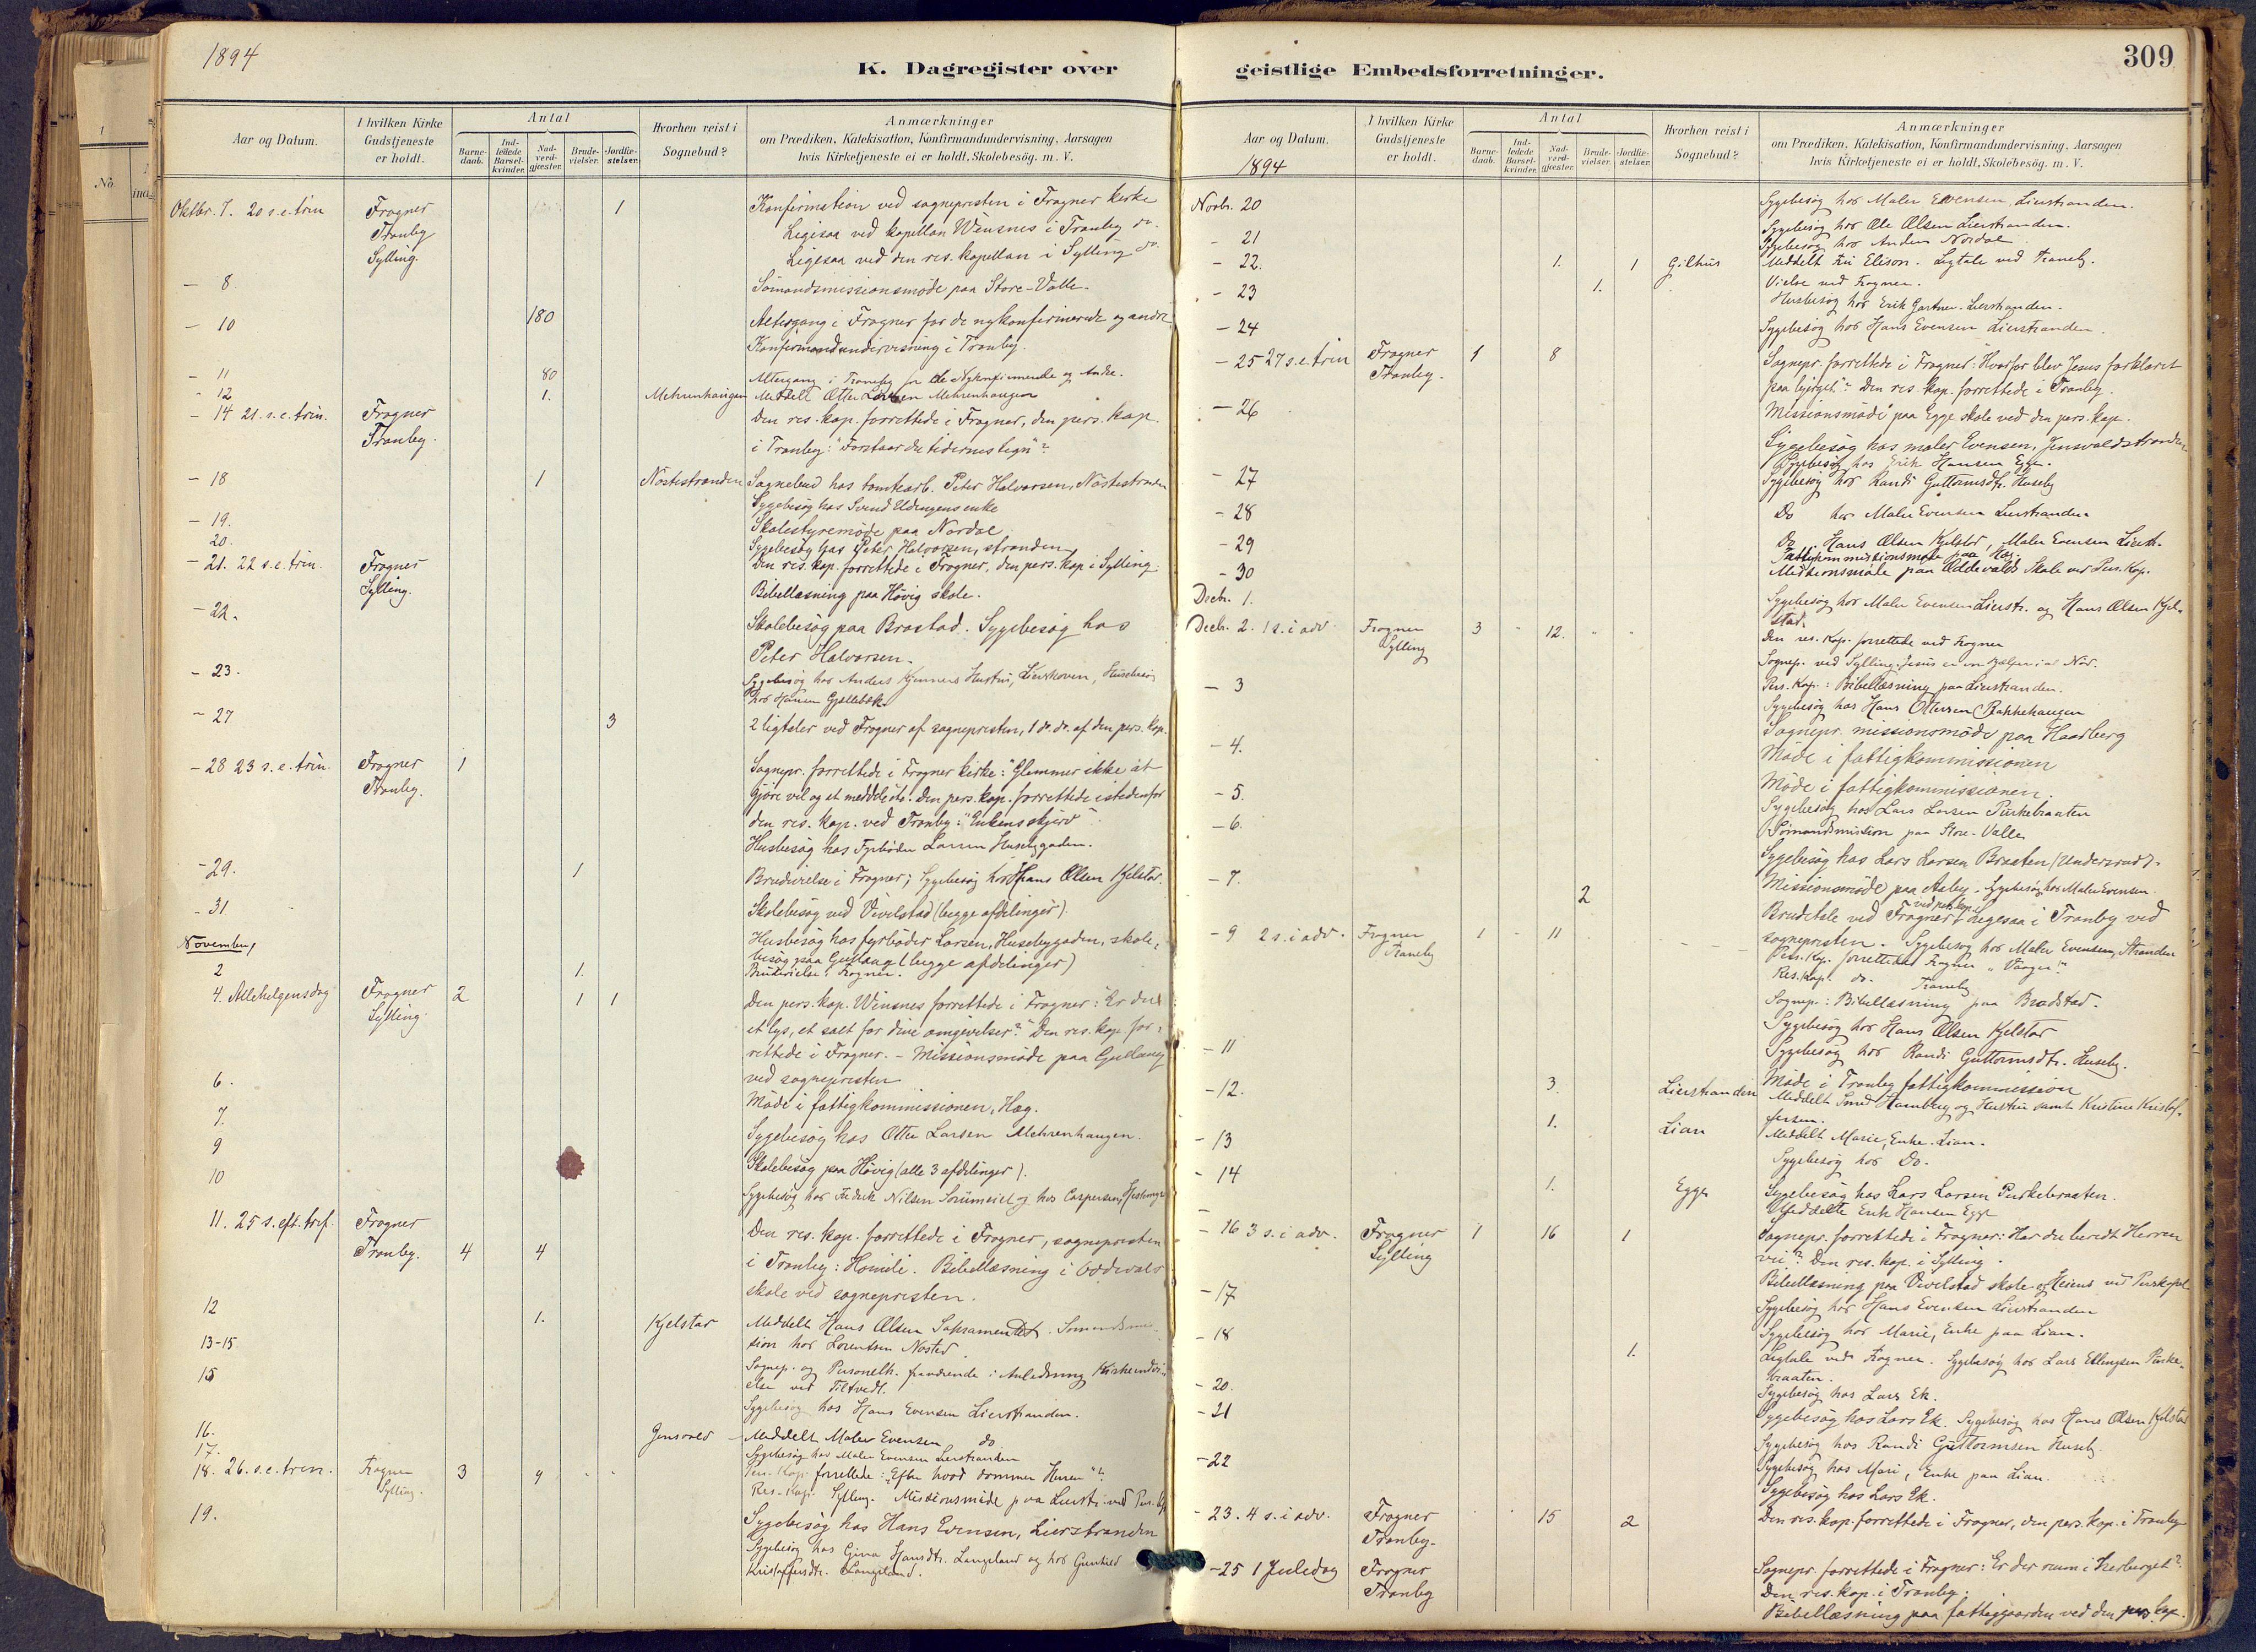 1894
K. Dagregister over
Aar og Datum.
I hvilken Kirke Gudstjeneste er holdt.
Antal
Barne-daab.
Ind-ledede Barsel-kvinder.
Nad-verd-gjæster.
Brude-vielser.
Jordfæ-stelser.
Hvorhen reist i Sognebud?
Anmærkninger
om Prædiken, Katekisation, Konfirmandundervisning, Aarsagen
hvis Kirketjeneste ei er holdt, Skolebesög. m. V.
Oktbr. 7. 20 s.e. trin Fragner 1 Konfirmation ved sognepresten i Fragner kirke
Tranby Ligesaa ved kapellan Winsnes i Tranby do.
Sylling. Ligesaa ved den res. kapellan i Sylling do.
- 8 Sömandsmissionsmöde paa Store-Valle.
- 10 180 Altergang i Fragner for de nykonfirmerede og andre
Konfirmandundervisning i Tranby.
- 11 80 Altergang i Tranby for de Nykonfirmerede og Andre.
- 12 1. Mehrenhaugen Meddelt Otter Larsen Mehrenhaugen
- 14 21. s.e. trin. Fragner Den res. kap. forrettede i Fragner, den pers. kap.
Tranby. i Tranby: "Forstaar du tidernes tegn"?
- 18 1 Nöstestranden Sognebud hos tomtearb. Peter Halvorsen, Nöstestranden
Sygebesög hos Svend enke
- 19. Skolestyremöde paa Nordal
20. Sygebesög hos Peter Halvorsen, stranden
- 21. 22 s.e. trin. Fragner Den res. kap. forrettede i Fragner, den pers. kap. i Sylling.
Sylling. Bibellæsning paa Hövig skole.
- 22. Skolebesög paa Brastad. Sygebesög hos
Peter Halvorsen.
- 23. Sygebesög hos Anders Hustru, Lierskoven, Husebesög
hos Hansen Gjellebæk
- 27 3 2 ligtaler ved Fragner af sognepresten, 1 do. do. af den pers. kap.
- 28 23 s.e. trin. Fragner 1 Sognepr. forrettede i Fragner kirke: "Glemmer ikke at
Tranby. gjöre vel og at meddele". Den pers. kap. forrettede istedenfor
den res. kap. ved Tranby: "Enkens skjerv".
Husbesög hos Fyrböder Larsen Husebygaden.
- 29. 1 Brudevielse i Fragner; Sygebesög hos Hans Olsen Kjelstad.
- 31 Skolebesög ved Vivelstad (begge afdelinger).
November Husbesög hos fyrböder Larsen, Husebygaden, skole-
besög paa Gullaug (begge afdelinger)
2 1. Brudevielse i Fragner.
4. Allehelgensdag Fragner 2 1 1 Den pers. kap. Winsnes forrettede i Fragner: "Er du
Sylling. et lys, et salt for dine omgivelser?" Den res. kap. for-
rettede i Fragner. - Missionsmöde paa Gullaug
ved sognepresten
6. Möde i fattigkommissionen, Hæg.
7. Sygebesög hos Otter Larsen Mehrenhaugen.
9 Skolebesög paa Hövig (alle 3 afdelinger).
10 Sygebesög hos Fredrik Nilsen og hos Caspersen,
11. 25 s. eft. tref. Fragner Den res. kap. forrettede i Fragner, sognepresten
Tranby. 4 4 i Tranby: Homili. Bibellæsning i Oddevals
skole ved sognepresten.
12 1. Kjelstad Meddelt Hans Olsen Sakramentet. Sömandsmis-
sion hos Lorentsen Nösted
13-15 Sognep. og Personelk. fraværende i Anledning Kirkeindvi-
else ved Filtvedt.
15 Sygebesög hos Hans Evensen Lierstranden.
16. Gensvold Meddelt Maler Evensen do
17. Sygebesög hos Maler Evensen Lierstranden
18. 26. s.e. trin. Fragner 3 9 Pers. Kap. forrettede: "Efter hvad dømmer Herren"?
Sylling. Res. Kap. Sylling. Missionsmöde paa Lierstr. ved Pers. Kap.
19. Sygebesög hos Hans Evensen, Lierstranden
Sygebesög hos Gina Hansdtr. Langeland og hos Gunhild
Kristoffersdtr. Langeland.
309
geistlige Embedsforretninger.
Aar og Datum.
1894
I hvilken Kirke Gudstjeneste er holdt.
Antal
Barne-daab.
Ind-ledede Barsel-kvinder.
Nad-verd-gjæster.
Brude-vielser.
Jordfæ-stelser.
Hvorhen reist i Sognebud?
Anmærkninger
om Prædiken, Katekisation, Konfirmandundervisning, Aarsagen
hvis Kirketjeneste ei er holdt, Skolebesög. m. V.
Novbr. 20 Sygebesög hos Maler Evensen, Lierstranden.
Sygebesög hos Ole Olsen Lierstranden.
- 21 Sygebesög hos Anders Nordal
- 22. 1. 1 Gilhus Meddelt Fru Elison. Ligtale ved Tranby.
- 23 1. Vielse ved Fragner.
Husbesög hos Erik Gartner Lierstranden.
- 24 Sygebesög hos Hans Evensen Lierstranden.
- 25 27 s.e. trin Fragner 1 8 Sognepr. forrettede i Fragner: "Hvorfor blev Jesus forklaret
Tranby. paa bjerget"? Den res. kap. forrettede i Tranby.
- 26 Missionsmöde paa Egge skole ved den pers. kap.
Sygebesög hos maler Evensen, Jensvoldstranden
Sygebesög hos Erik Hansen Egge.
- 27 Sygebesög hos Randi Guttormsdtr. Huseby
- 28 Do hos Maler Evensen Lierstranden
- 29 Do. Hans Olsen Kjelstad, Maler Evensen Lierstr.
Fattigkommissionsmöde paa Hæg.
- 30 Missionsmöde paa Oddevalds Skole ved Pers. Kap.
Decbr. 1. Sygebesög hos Maler Evensen Lierstr. og Hans Olsen Kjel-
stad.
Decbr. 2. 1 s. i adv. Fragner 3 - 12. Den res. Kap. forrettede ved Fragner
Sylling Sognep. ved Sylling. Jesus er vor hjælper i al Nød.
- 3 Pers. Kap.: Bibellæsning paa Lierstranden.
Sygebesög hos Hans Ottersen Bakkehaugen
- 4. Sognepr. missionsmöde paa Haasberg
Möde i fattigkommissionen
- 5. Möde i fattigkommissionen.
- 6. Sygebesög hos Lars Larsen Purkebraaten
Sömandsmission paa Store-Valle.
Sygebesög hos Lars Larsen Braaten (Undersrud).
- 7. Missionsmöde paa Aaby. Sygebesög hos Maler Evensen.
2 Brudetale ved Fragner ved pers. kap. Ligesaa i Tranby ved
sognepresten. Sygebesög hos Maler Evensen, Stranden
- 9 2 s. i adv. Fragner 1 - 11 Pers. Kap. forrettede ved Fragner "Vaager!"
Tranby Res. Kap. do. Tranby
Sognep.: Bibellæsning paa Bradstad.
Sygebesög hos Hans Olsen Kjelstad
- 11 Sygebesög hos Randi Guttormsdtr. Huseby.
Möde i Tranby fattigkommission
- 12. 3 Lierstranden Meddelt Smed Hamberg og Hustru samt Kristine Kristof-
fersen.
- 13 1. Lian Meddelt Marie, Enke Lian.
- 14 Sygebesög hos Do.
Sygebesög hos Lars Larsen Purkebraaten.
- 1. Egge Meddelte Erik Hansen Egge
- 16 3 s. i adv. Fragner 1 16 1 Sognepr. forrettede i Fragner: Har du beredt Herren
Sylling vei"? Den res. kap. i Sylling.
- 17 Bibellæsning paa Vivelstad skole ved Perskapel
Sygebesög hos Hans Evensen Lierstranden
- 18 Sygebesög hos Marie, Enke paa Lian.
1. Ligtale ved Fragner. Sygebesög hos Lars Ellingsen Purke-
braaten.
- 20. Sygebesög hos Lars Ek.
- 21 Sygebesög hos Lars Ek. Sygebesög hos Hans Olsen Kjelstad
Sygebesög hos Randi Guttormsen Huseby.
- 22 Sygebesög hos Mari, Enke paa Lian.
Sygebesög hos Lars Ek.
- 23. 4 s. i adv. Fragner 15 2 Den res. kap. forrettede i Fragner, den pers. kap. i Tranby
Tranby.
- 25 1 Juledag Fragner Sognepr. forrettede i Fragner: Er der rum i herberget?
Tranby Den res. kap. i Tranby.
Bibellæsning paa fattiggaarden ved den pers kap.